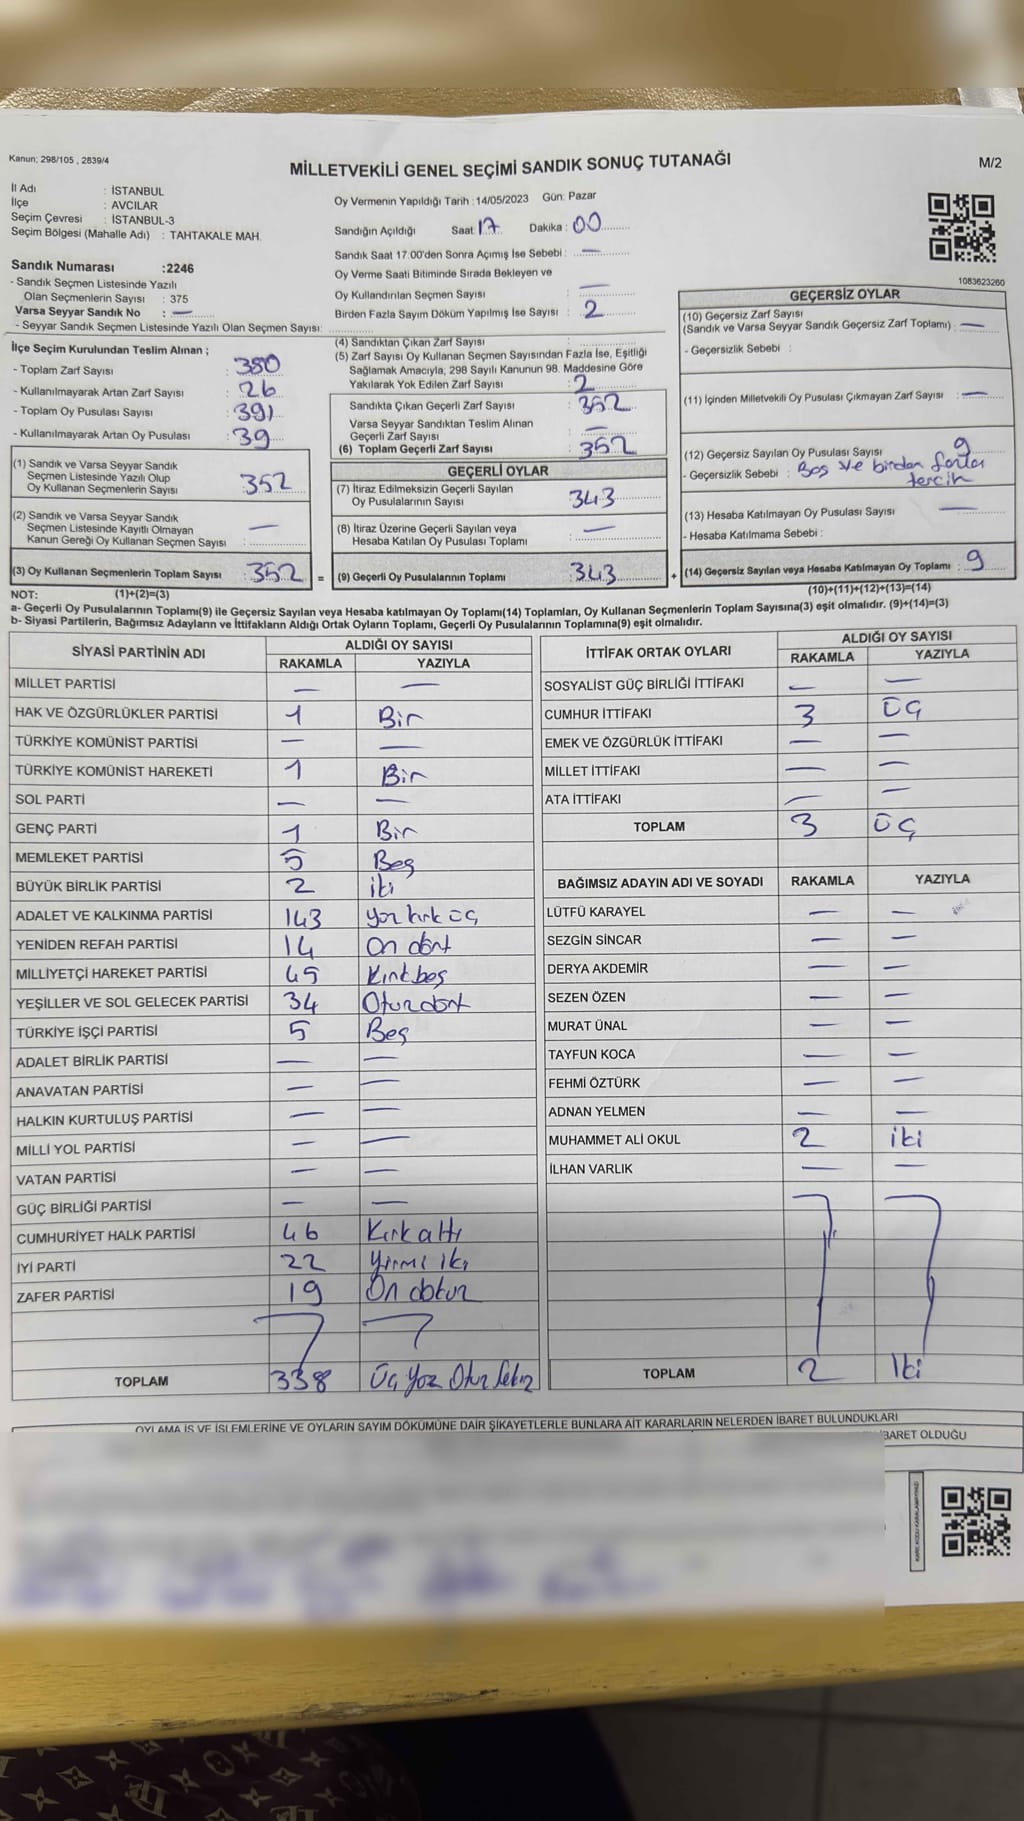 Kanun; 298/105 , 2839/4
MİLLETVEKİLİ GENEL SEÇİMİ SANDIK SONUÇ TUTANAĞI
M/2
İl Adı : İSTANBUL
İlçe : AVCILAR
Seçim Çevresi : İSTANBUL-3
Seçim Bölgesi (Mahalle Adı) : TAHTAKALE MAH.
Sandık Numarası :2246
- Sandık Seçmen Listesinde Yazılı
Olan Seçmenlerin Sayısı : 375
Varsa Seyyar Sandık No : —
- Seyyar Sandık Seçmen Listesinde Yazılı Olan Seçmen Sayısı:
Oy Vermenin Yapıldığı Tarih : 14/05/2023 Gün: Pazar
Sandığın Açıldığı Saat: 17 Dakika : 00
Sandık Saat 17.00'den Sonra Açımış İse Sebebi : —
Oy Verme Saati Bitiminde Sırada Bekleyen ve
Oy Kullandırılan Seçmen Sayısı : —
Birden Fazla Sayım Döküm Yapılmış İse Sayısı : 2
1083623260
İlçe Seçim Kurulundan Teslim Alınan ;
- Toplam Zarf Sayısı : 380
- Kullanılmayarak Artan Zarf Sayısı : 26
- Toplam Oy Pusulası Sayısı : 391
- Kullanılmayarak Artan Oy Pusulası : 39
(1) Sandık ve Varsa Seyyar Sandık
Seçmen Listesinde Yazılı Olup
Oy Kullanan Seçmenlerin Sayısı : 352
(2) Sandık ve Varsa Seyyar Sandık
Seçmen Listesinde Kayıtlı Olmayan
Kanun Gereği Oy Kullanan Seçmen Sayısı : —
(3) Oy Kullanan Seçmenlerin Toplam Sayısı : 352 =
(4) Sandıktan Çıkan Zarf Sayısı :
(5) Zarf Sayısı Oy Kullanan Seçmen Sayısından Fazla İse, Eşitliği
Sağlamak Amacıyla, 298 Sayılı Kanunun 98. Maddesine Göre
Yakılarak Yok Edilen Zarf Sayısı : 2
Sandıkta Çıkan Geçerli Zarf Sayısı : 352
Varsa Seyyar Sandıktan Teslim Alınan
Geçerli Zarf Sayısı : —
(6) Toplam Geçerli Zarf Sayısı : 352
GEÇERLİ OYLAR
(7) İtiraz Edilmeksizin Geçerli Sayılan
Oy Pusulalarının Sayısı : 343
(8) İtiraz Üzerine Geçerli Sayılan veya
Hesaba Katılan Oy Pusulası Toplamı : —
(9) Geçerli Oy Pusulalarının Toplamı : 343 +
GEÇERSİZ OYLAR
(10) Geçersiz Zarf Sayısı
(Sandık ve Varsa Seyyar Sandık Geçersiz Zarf Toplamı) : —
- Geçersizlik Sebebi :
(11) İçinden Milletvekili Oy Pusulası Çıkmayan Zarf Sayısı : —
(12) Geçersiz Sayılan Oy Pusulası Sayısı : 9
- Geçersizlik Sebebi : Boş ve birden fazla
tercih
(13) Hesaba Katılmayan Oy Pusulası Sayısı : —
- Hesaba Katılmama Sebebi :
(14) Geçersiz Sayılan veya Hesaba Katılmayan Oy Toplamı : 9
NOT: (1)+(2)=(3) (10)+(11)+(12)+(13)=(14)
a- Geçerli Oy Pusulalarının Toplamı(9) ile Geçersiz Sayılan veya Hesaba katılmayan Oy Toplamı(14) Toplamları, Oy Kullanan Seçmenlerin Toplam Sayısına(3) eşit olmalıdır. (9)+(14)=(3)
b- Siyasi Partilerin, Bağımsız Adayların ve İttifakların Aldığı Ortak Oyların Toplamı, Geçerli Oy Pusulalarının Toplamına(9) eşit olmalıdır.
SİYASİ PARTİNİN ADI ALDIĞI OY SAYISI
RAKAMLA YAZIYLA
MİLLET PARTİSİ — —
HAK VE ÖZGÜRLÜKLER PARTİSİ 1 Bir
TÜRKİYE KOMÜNİST PARTİSİ — —
TÜRKİYE KOMÜNİST HAREKETİ 1 Bir
SOL PARTİ — —
GENÇ PARTİ 1 Bir
MEMLEKET PARTİSİ 5 Beş
BÜYÜK BİRLİK PARTİSİ 2 iki
ADALET VE KALKINMA PARTİSİ 143 yüz kırk üç
YENİDEN REFAH PARTİSİ 14 On dört
MİLLİYETÇİ HAREKET PARTİSİ 45 Kırk beş
YEŞİLLER VE SOL GELECEK PARTİSİ 34 Otuz dört
TÜRKİYE İŞÇİ PARTİSİ 5 Beş
ADALET BİRLİK PARTİSİ — —
ANAVATAN PARTİSİ — —
HALKIN KURTULUŞ PARTİSİ — —
MİLLİ YOL PARTİSİ — —
VATAN PARTİSİ — —
GÜÇ BİRLİĞİ PARTİSİ — —
CUMHURİYET HALK PARTİSİ 46 Kırk altı
İYİ PARTİ 22 Yirmi iki
ZAFER PARTİSİ 19 On dokuz
TOPLAM 338 Üç Yüz Otuz Sekiz
İTTİFAK ORTAK OYLARI ALDIĞI OY SAYISI
RAKAMLA YAZIYLA
SOSYALİST GÜÇ BİRLİĞİ İTTİFAKI — —
CUMHUR İTTİFAKI 3 ÜÇ
EMEK VE ÖZGÜRLÜK İTTİFAKI — —
MİLLET İTTİFAKI — —
ATA İTTİFAKI — —
TOPLAM 3 ÜÇ
BAĞIMSIZ ADAYIN ADI VE SOYADI RAKAMLA YAZIYLA
LÜTFÜ KARAYEL — —
SEZGİN SİNCAR — —
DERYA AKDEMİR — —
SEZEN ÖZEN — —
MURAT ÜNAL — —
TAYFUN KOCA — —
FEHMİ ÖZTÜRK — —
ADNAN YELMEN — —
MUHAMMET ALİ OKUL 2 iki
İLHAN VARLIK — —
TOPLAM 2 İki
OYLAMA İŞ VE İŞLEMLERİNE VE OYLARIN SAYIM DÖKÜMÜNE DAİR ŞİKAYETLERLE BUNLARA AİT KARARLARIN NELERDEN İBARET BULUNDUKLARI
İBARET OLDUĞU